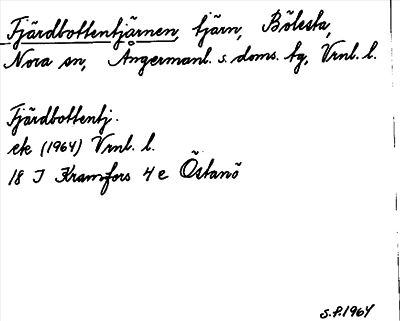 Fjärdbottentjärnen, tjärn, Bölesta,
Nora sn, Ångermanl. s. doms. tg, Vrnl. l.
Fjärdbottentj.
ek (1964) Vrnl. l.
18 I Kramfors 4 e Östanö
S.P. 1964